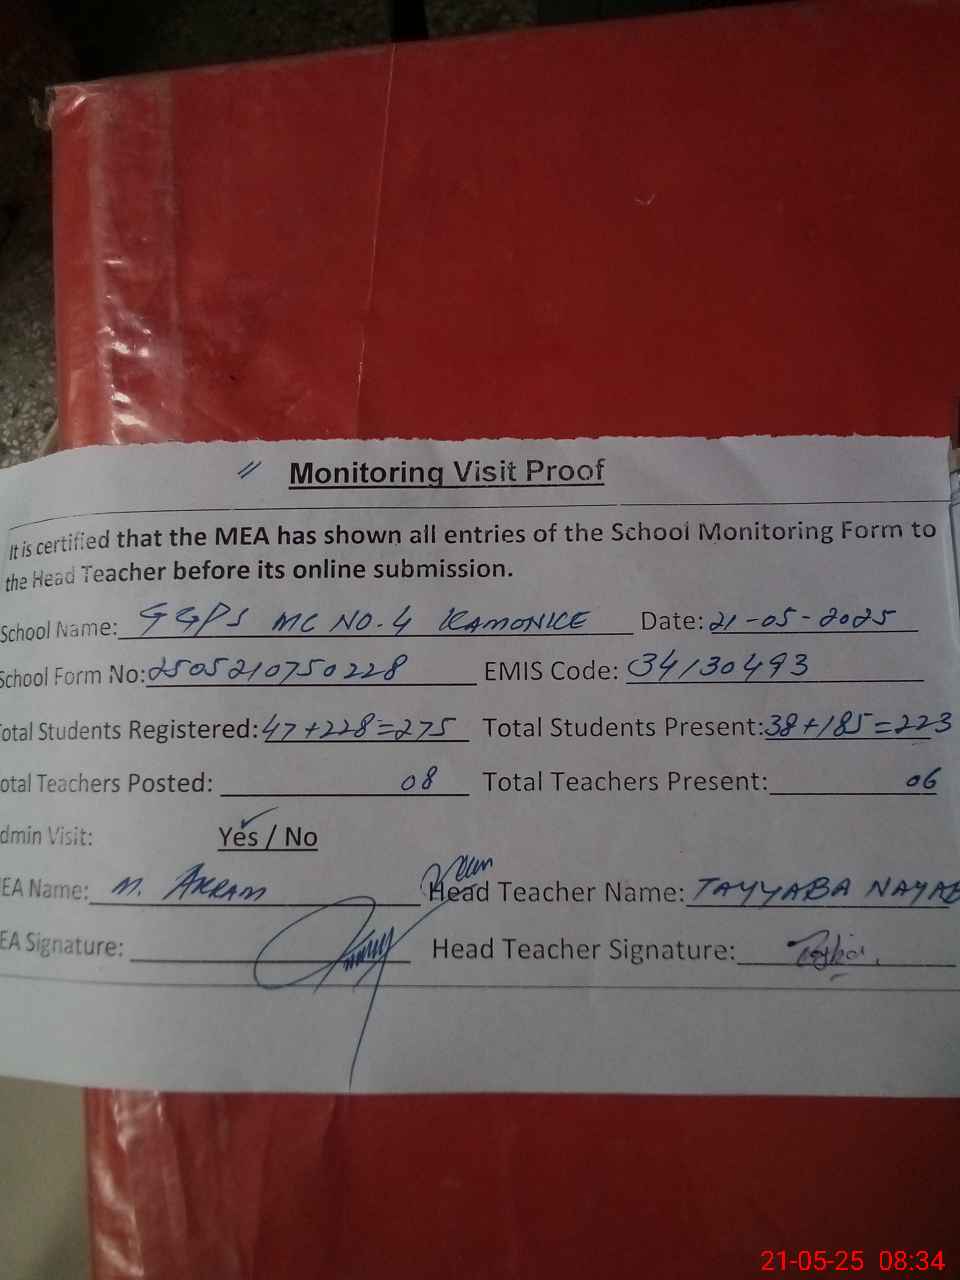 Monitoring Visit Proof
It is certified that the MEA has shown all entries of the School Monitoring Form to
the Head Teacher before its online submission.
School Name: GGPS MC NO.4 KAMONKE Date: 21-05-2025
School Form No: 250521075 0228 EMIS Code: 34130493
otal Students Registered: 47+228=275 Total Students Present: 38+185=223
otal Teachers Posted: 08 Total Teachers Present: 06
dmin Visit: Yes / No
EA Name: M. AKRAM Head Teacher Name: TAYYABA NAYAB
EA Signature: Head Teacher Signature:
21-05-25 08:34